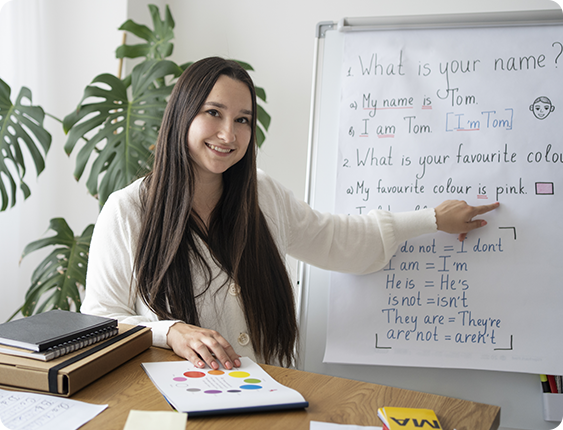 1. What is your name?
a) My name is Tom.
b) I am Tom. [I'm Tom]
2. What is your favourite colou
a) My favourite colour is pink.
do not = I don't
I am = I'm
He is = He's
is not = isn't
They are = They're
are not = aren't
MA